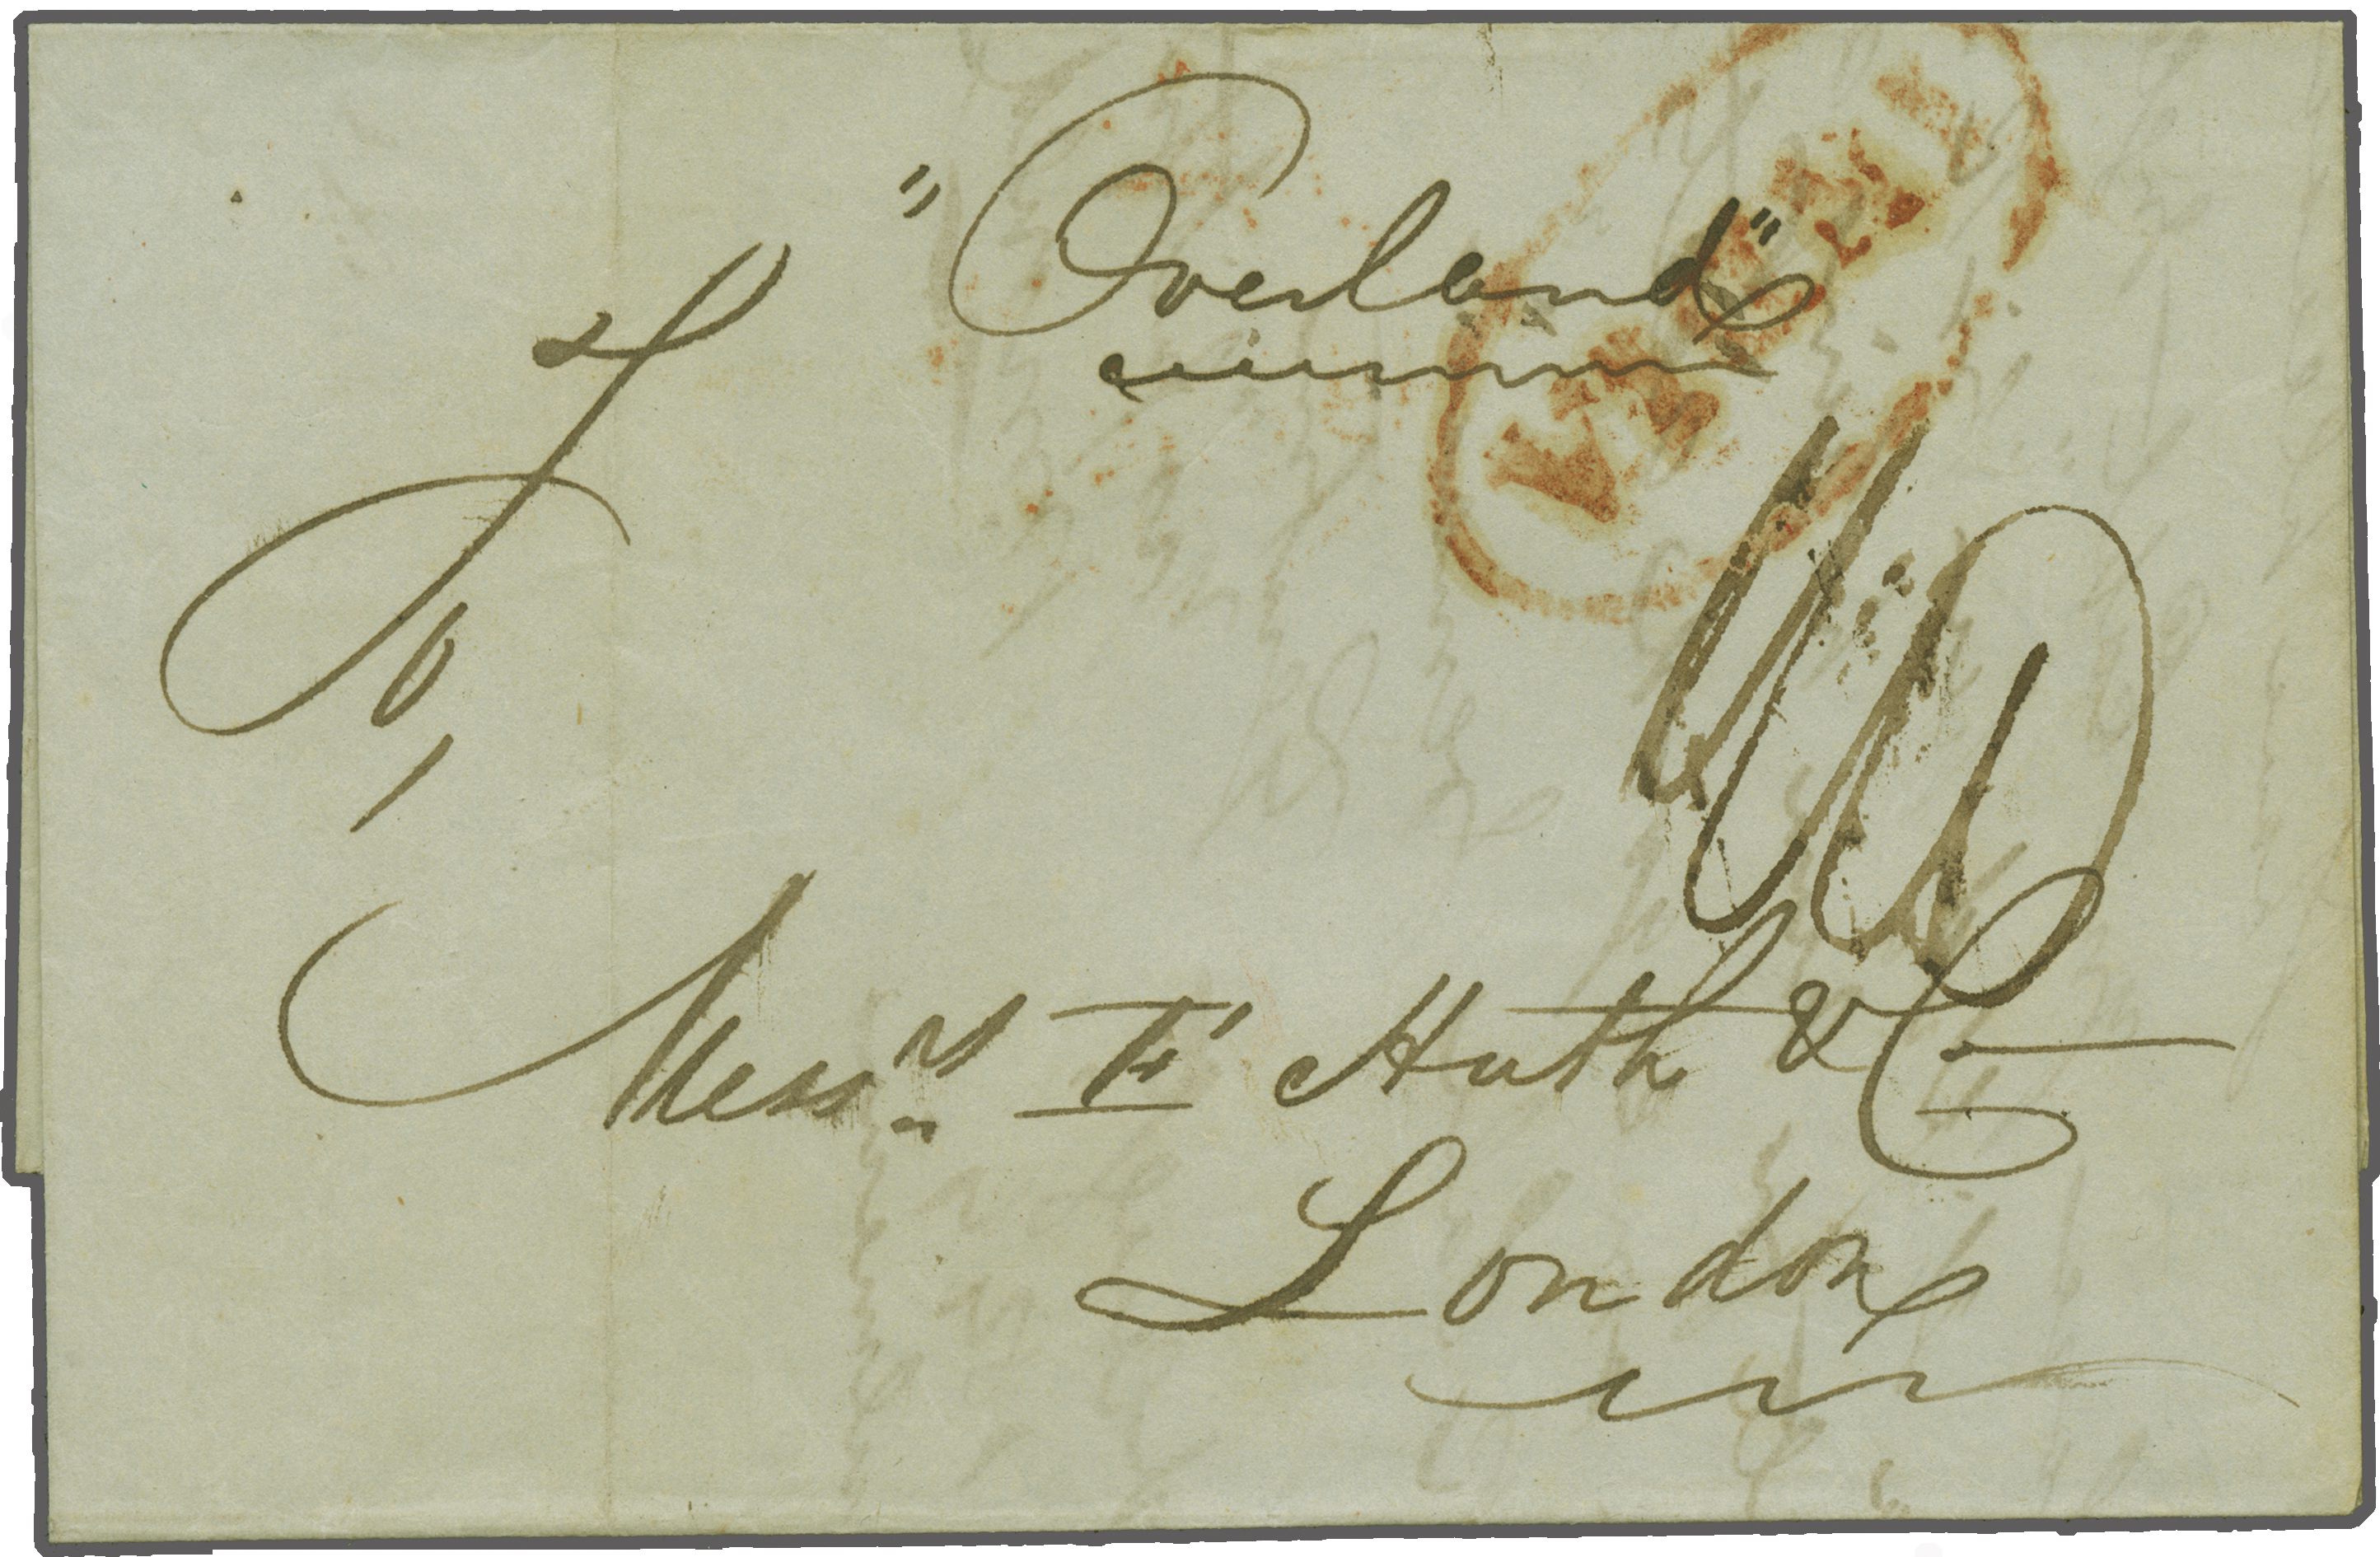 "Overland"
To
Messrs F Huth & Co
London